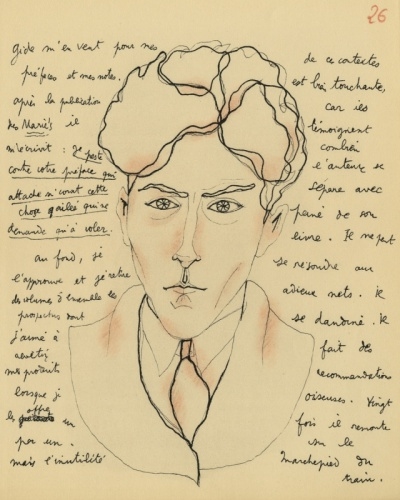 26
Gide m'en veut pour mes
préfaces et mes notes.
après la publication
des Mariés il
m'écrivit : Je peste
contre votre préface qui
attache m'avait cette
chose qui ne
demande qu'à voler.
au fond, je
l'approuve et je retire
des volumes d'ensemble les
prospectus dont
j'aimé à
mes produits
lorsque je
les offre un
par un.
mais l'inutilité
de ce contextes
est bien touchante,
car ils
témoignent
combien
l'auteur se
sépare avec
peine de son
livre. Il ne peut
se résoudre aux
adieux nets. Il
se dandine. Il
fait des
recommandation
oiseuses. Vingt
fois il remonte
sur le
marchepied du
train.